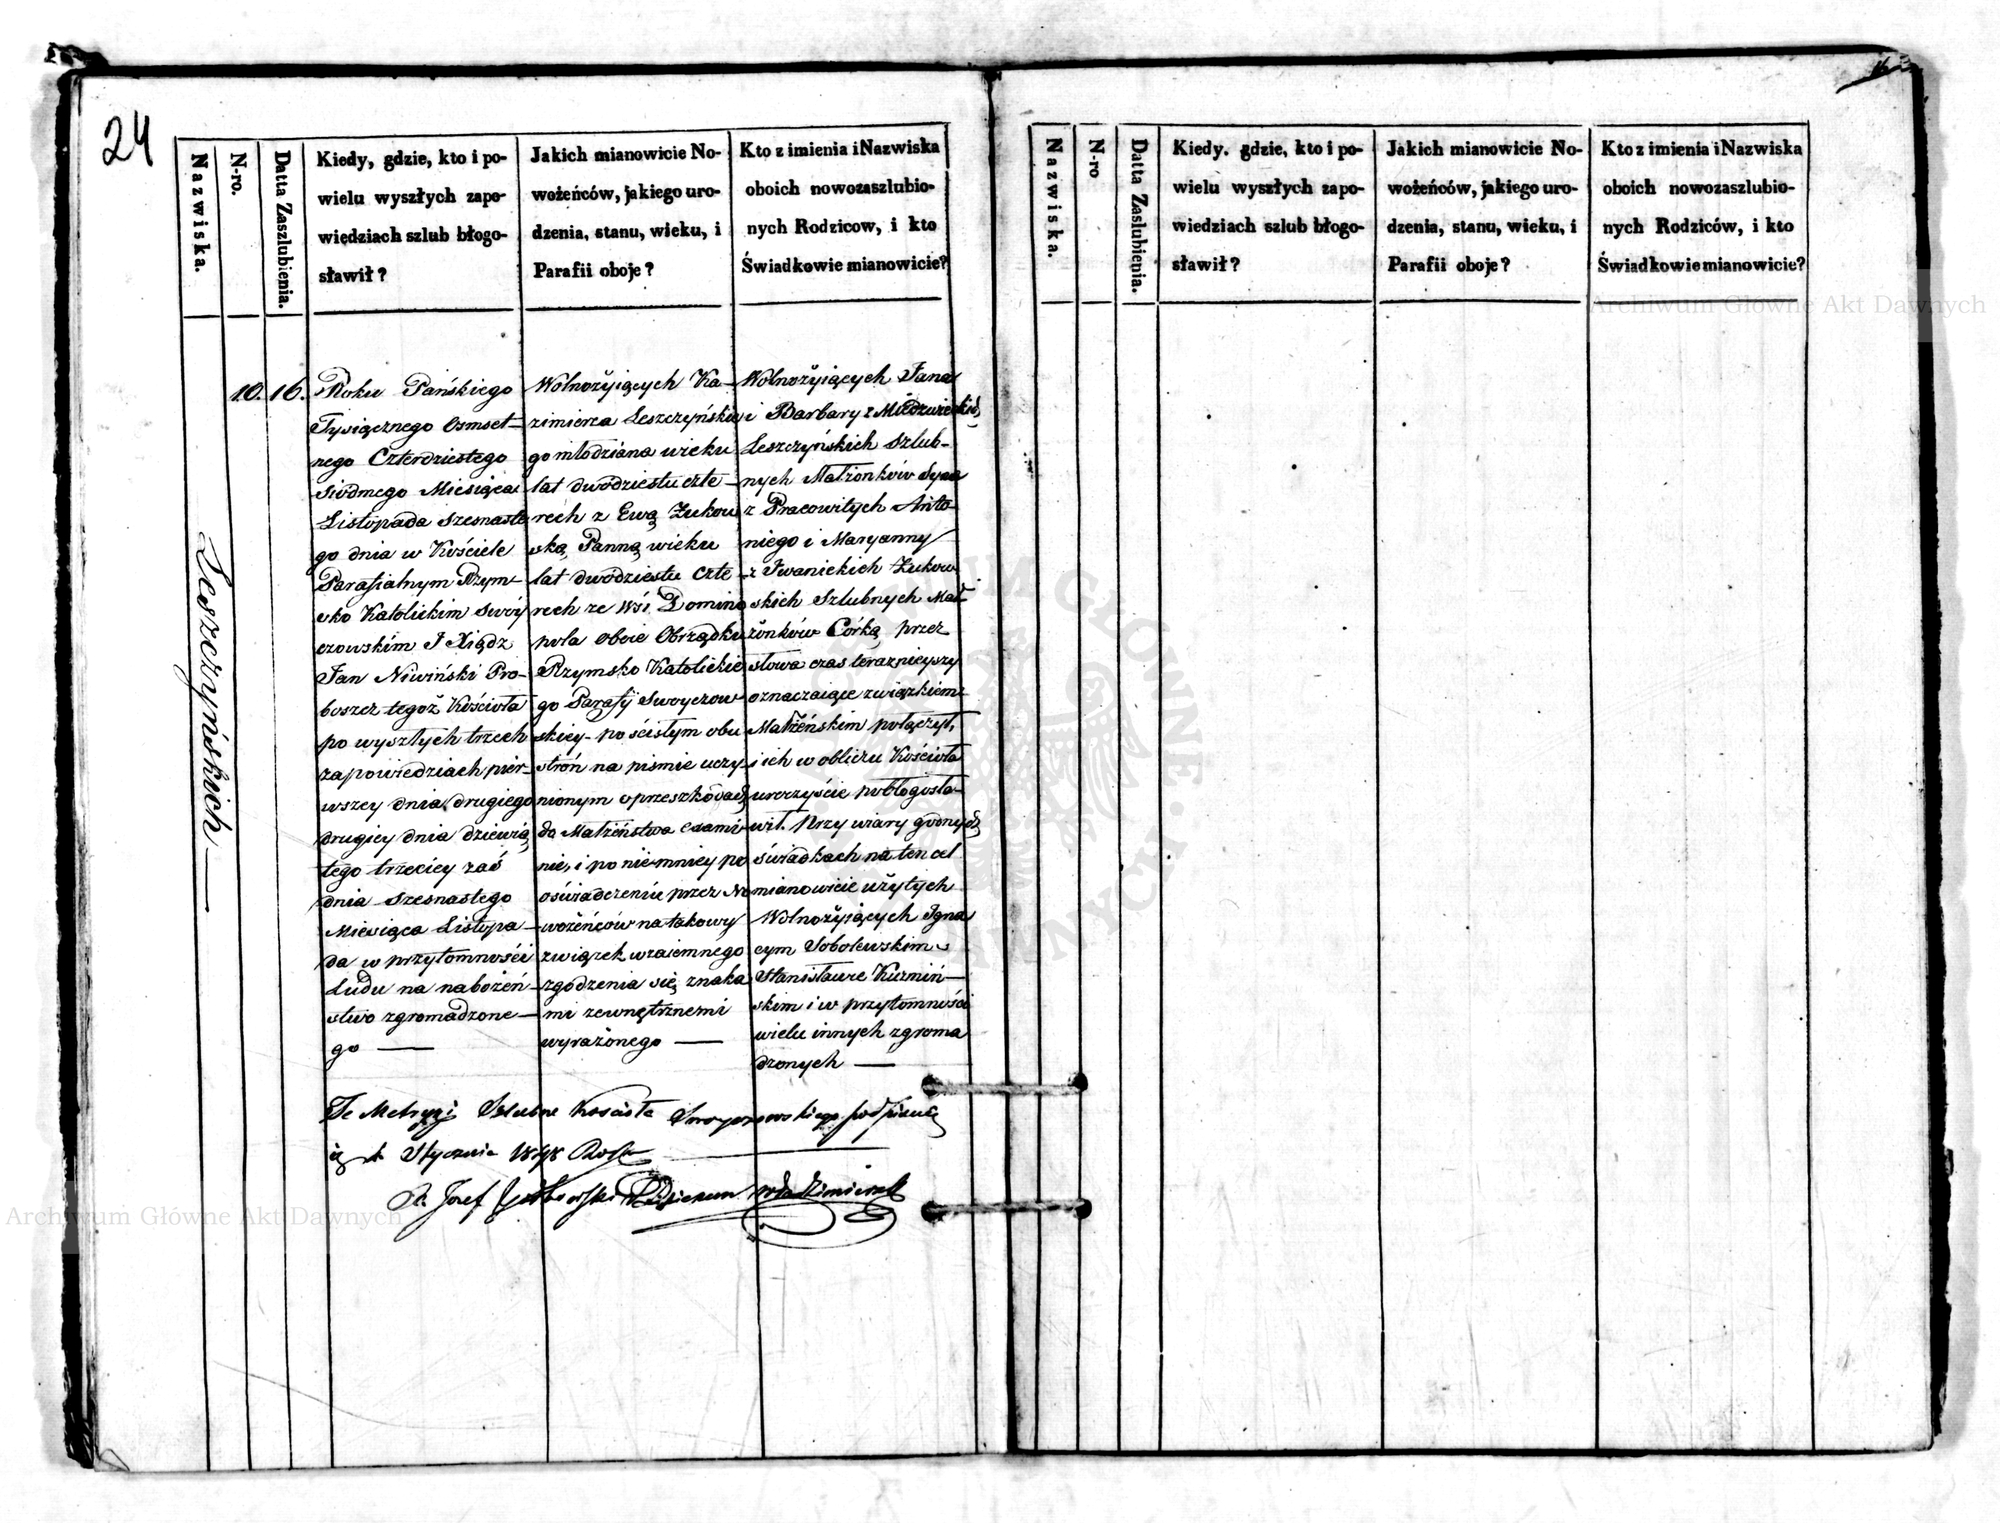 24
Nazwiska.
N-ro.
Datta Zaszlubienia.
Kiedy, gdzie, kto i po-
wielu wyszłych zapo-
wiedziach szlub błogo-
sławił?
Jakich mianowicie No-
wożeńców, jakiego uro-
dzenia, stanu, wieku, i
Parafii oboje?
Kto z imienia i Nazwiska
oboich nowozaszlubio-
nych Rodzicow, i kto
Świadkowie mianowicie?
Leszczyńskich
10.
16.
Roku Pańskiego
Tysiącznego Osmset-
nego Czterdziestego
Siódmego Miesiąca
Listopada szesnaste
go dnia w Kościele
Parafialnym Rzym-
sko Katolickim Swóy
czowskim J Xiądz
Jan Niwiński Pro-
boszcz tegoż Kościoła
po wyszłych trzech
zapowiedziach pier-
wszey dnia drugiego
drugiey dnia dziewią
tego trzeciey zaś
dnia szesnastego
Miesiąca Listopa-
da w przytomności
Ludu na nabożeń-
stwo zgromadzone-
go
Wolnożyiących Ka-
zimierza Leszczyńskie
go młodziana wieku
lat dwudziestu czte-
rech z Ewą Żukow
ską, Panną wieku
lat dwudziestu czte
rech ze Wsi Domino
pola oboie Obrządku
Rzymsko Katolickie
go Parafij Swoyczow
skiey - po ścisłym obu
strón na piśmie uczy-
nionym o przeszkodach
do Małżeństwa exami-
nie, i po niemniey po
oświadczeniu przez No
wożeńców na takowy
związek wzaiemnego
zgodzenia się znaka
mi zewnętrznemi
wyrażonego
Wolnożyiących Jana
i Barbary z
Leszczyńskich Szlub-
nych Małżonków Syna
z Pracowitych Anto-
niego i Maryanny
z Iwanickich Żukow
skich Szlubnych Mał
żonków Córką, przez
słowa czas teraznieyszy
oznaczaiące związkiem
Małżeńskim połączył,
i ich w obliczu Kościoła
uroczyście pobłogosła-
wił. Przy wiary godnych
świadkach na ten cel
mianowicie użytych
Wolnożyiących Igna
cym Sobolewskim
Stanisławie Kuzmiń-
skim i w przytomności
wielu innych zgroma
dzonych
Te Metryki Szlubne Kościoła Swoyczowskiego podpisuię
Stycznia 1848 Roku
X. Józef
Nazwiska.
N-ro
Datta Zaslubienia.
Kiedy. gdzie, kto i po-
wielu wyszłych zapo-
wiedziach szlub błogo-
sławił?
Jakich mianowicie No-
wożeńców, jakiego uro-
dzenia, stanu, wieku, i
Parafii oboje?
Kto z imienia i Nazwiska
oboich nowozaszlubio-
nych Rodziców, i kto
Świadkowie mianowicie?
Archiwum Główne Akt Dawnych
Archiwum Główne Akt Dawnych